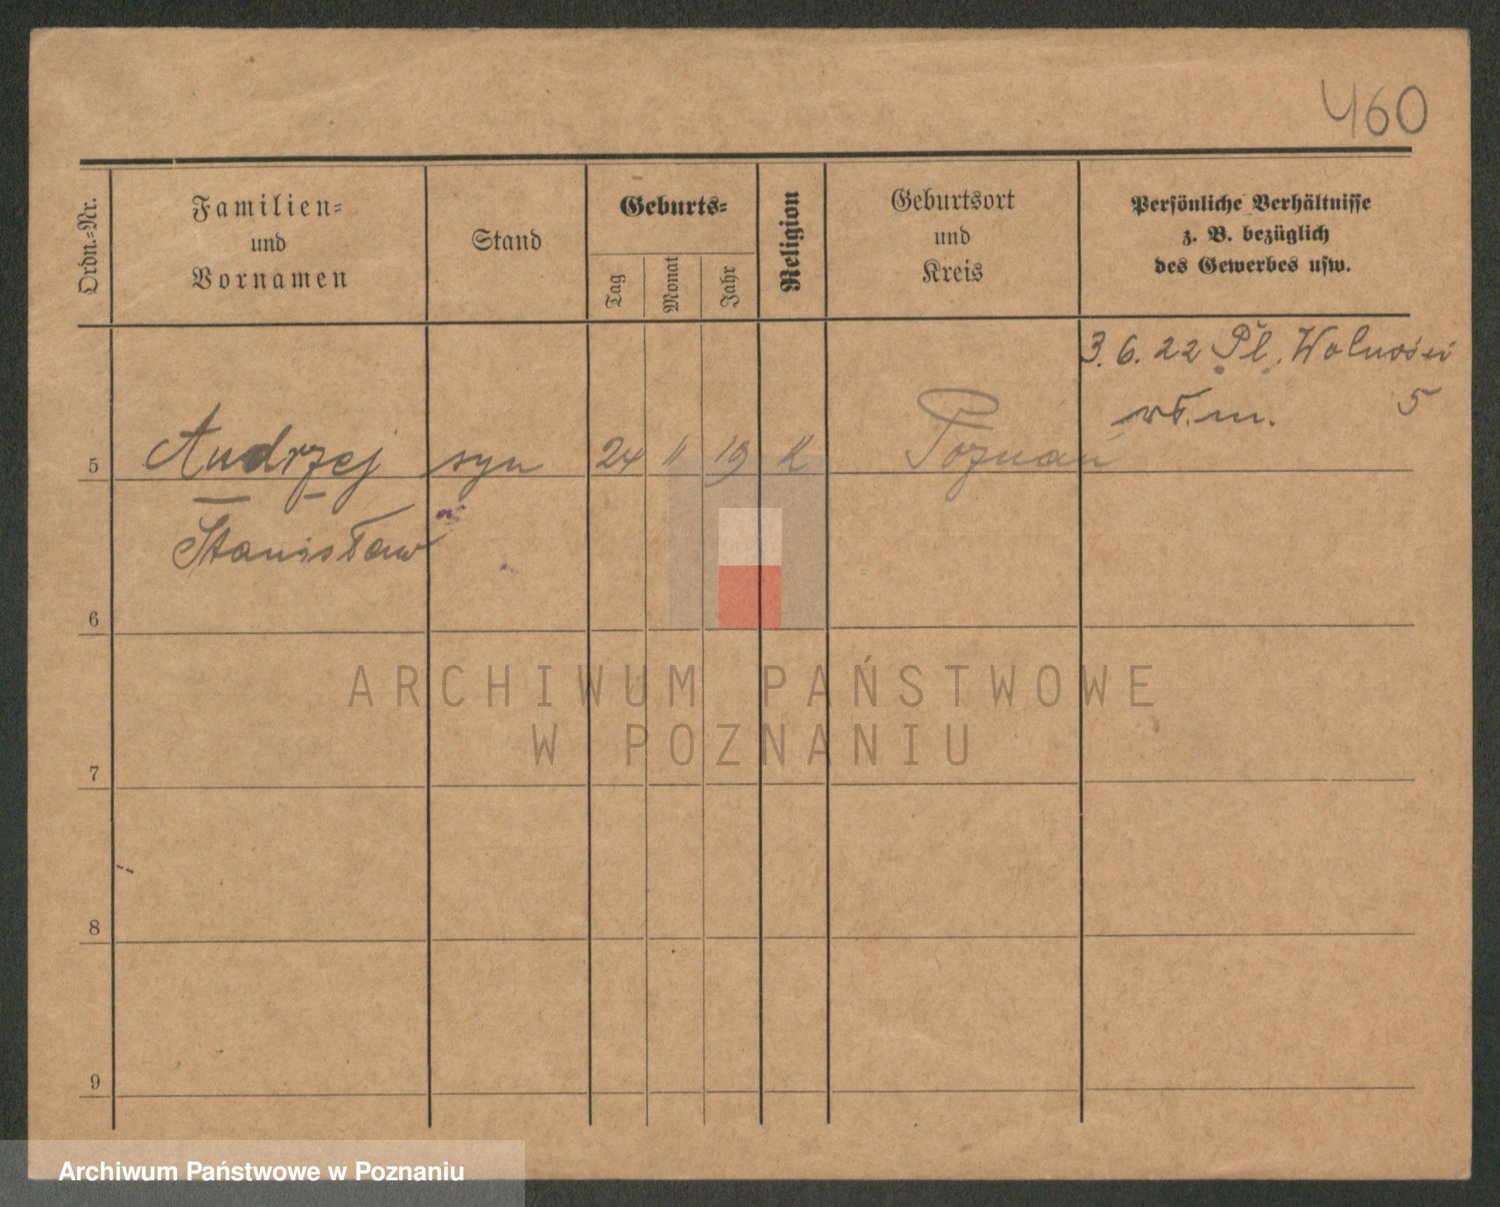 460
Ordn.-Nr.
Familien-
und
Vornamen
Stand
Geburts-
Tag
Monat
Jahr
Religion
Geburtsort
und
Kreis
Persönliche Verhältnisse
z. B. bezüglich
des Gewerbes usw.
3. 6. 22 Pl. Wolności
5
wł. m.
5 Andrzej syn 24 11 19 K Poznań
Stanisław
6
7
8
9
ARCHIWUM PAŃSTWOWE
W POZNANIU
Archiwum Państwowe w Poznaniu